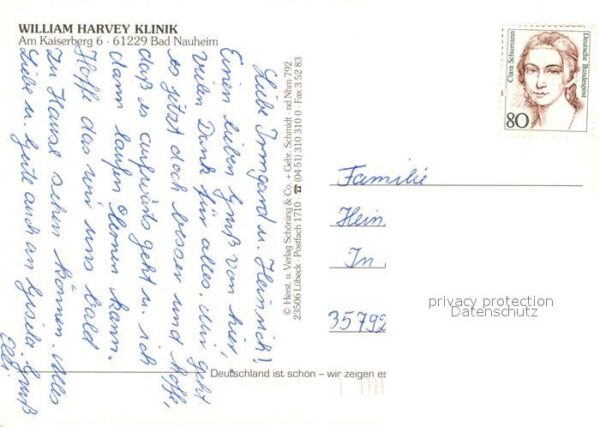 WILLIAM HARVEY KLINIK
Am Kaiserberg 6 · 61229 Bad Nauheim
Liebe Irmgard u. Heinrich!
Einen lieben Gruß von hier,
vielen Dank für alles. Mir geht
es jetzt doch besser und hoffe,
daß es aufwärts geht u. ich
dann laufen lernen kann.
Hoffe das wir uns bald
zu Hause sehen können. Alles
Liebe u. Gute auch an Gisela. Gruß
Elli
© Herst. u. Verlag Schöning & Co. + Gebr. Schmidt · nd Nhm 792
23506 Lübeck · Postfach 1710 · ☎ (04 51) 310 310 0 · Fax 3 52 83
Clara Schumann
Deutsche Bundespost
80
Familie
Hein
In
35792
privacy protection
Datenschutz
Deutschland ist schön – wir zeigen es